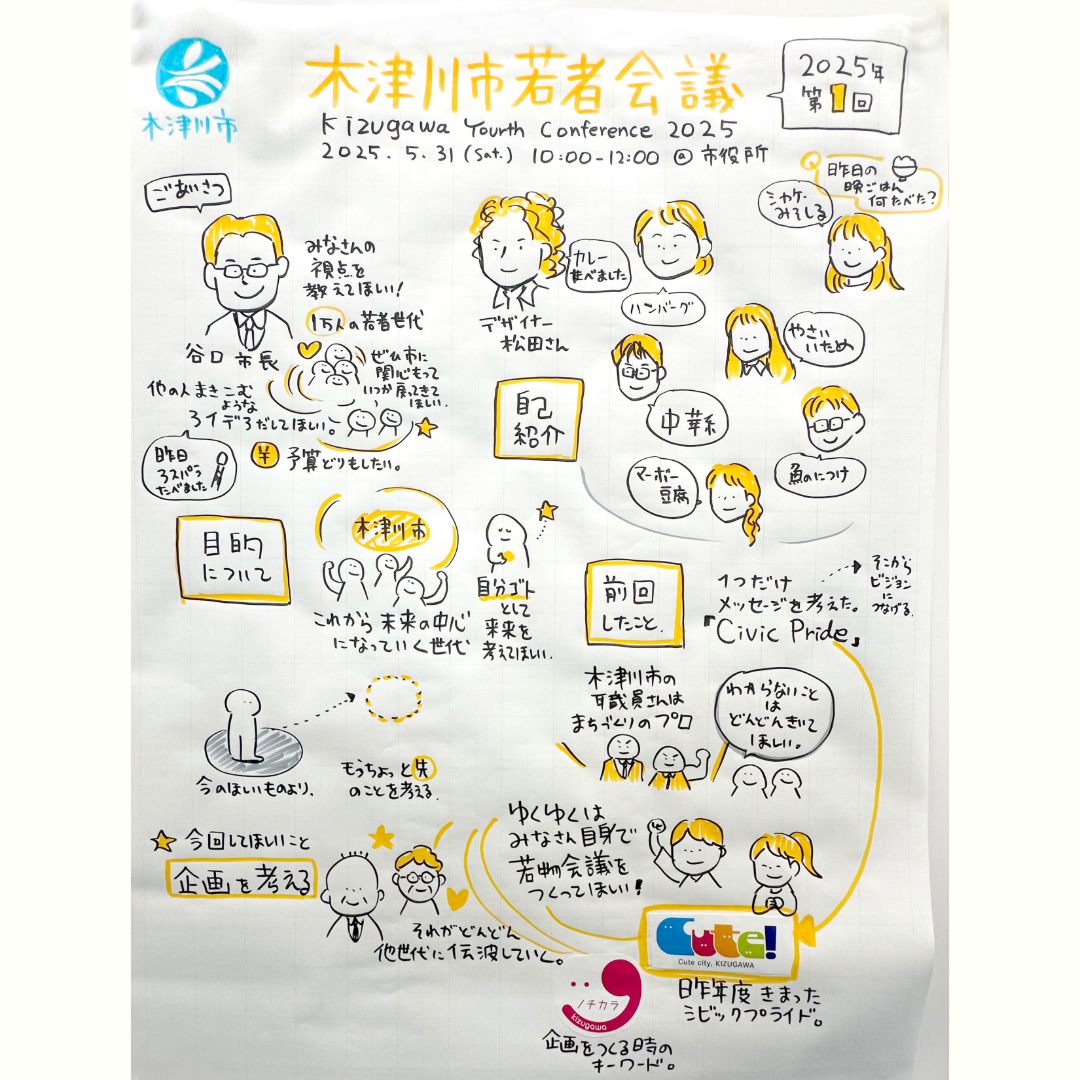 木津川市
木津川市若者会議
Kizugawa Yourth Conference 2025
2025.5.31(Sat.) 10:00-12:00 @市役所
2025年
第1回
ごあいさつ
みなさんの
視点を
教えてほしい!
1万人の若者世代
谷口市長
ぜひ市に
関心もって
いつか戻ってきて
ほしい。
他の人まきこむ
ような
アイデアだしてほしい。
昨日
アスパラ
たべました
¥ 予算どりもしたい。
デザイナー
松田さん
カレー
食べました
ハンバーグ
Q 昨日の
晩ごはん
何たべた?
シャケ・
みそしる
やさい
いため
自己
紹介
中華系
魚のにつけ
マーボー
豆腐
目的
について
木津川市
これから未来の中心
になっていく世代
自分ゴト
として
未来を
考えてほしい。
前回
したこと。
1つだけ
メッセージを考えた。
「Civic Pride」
そこから
ビジョン
に
つなげる。
木津川市の
職員さんは
まちづくりのプロ
わからないこと
は
どんどんきいて
ほしい。
今のほしいものより、
もうちょっと先
のことを考える。
今回してほしいこと
企画を考える
ゆくゆくは
みなさん自身で
若者会議を
つくってほしい!
それがどんどん
他世代に伝波していく。
Cute!
Cute city, KIZUGAWA
昨年度きまった
シビックプライド。
ノチカラ
kizugawa
企画をつくる時の
キーワード。